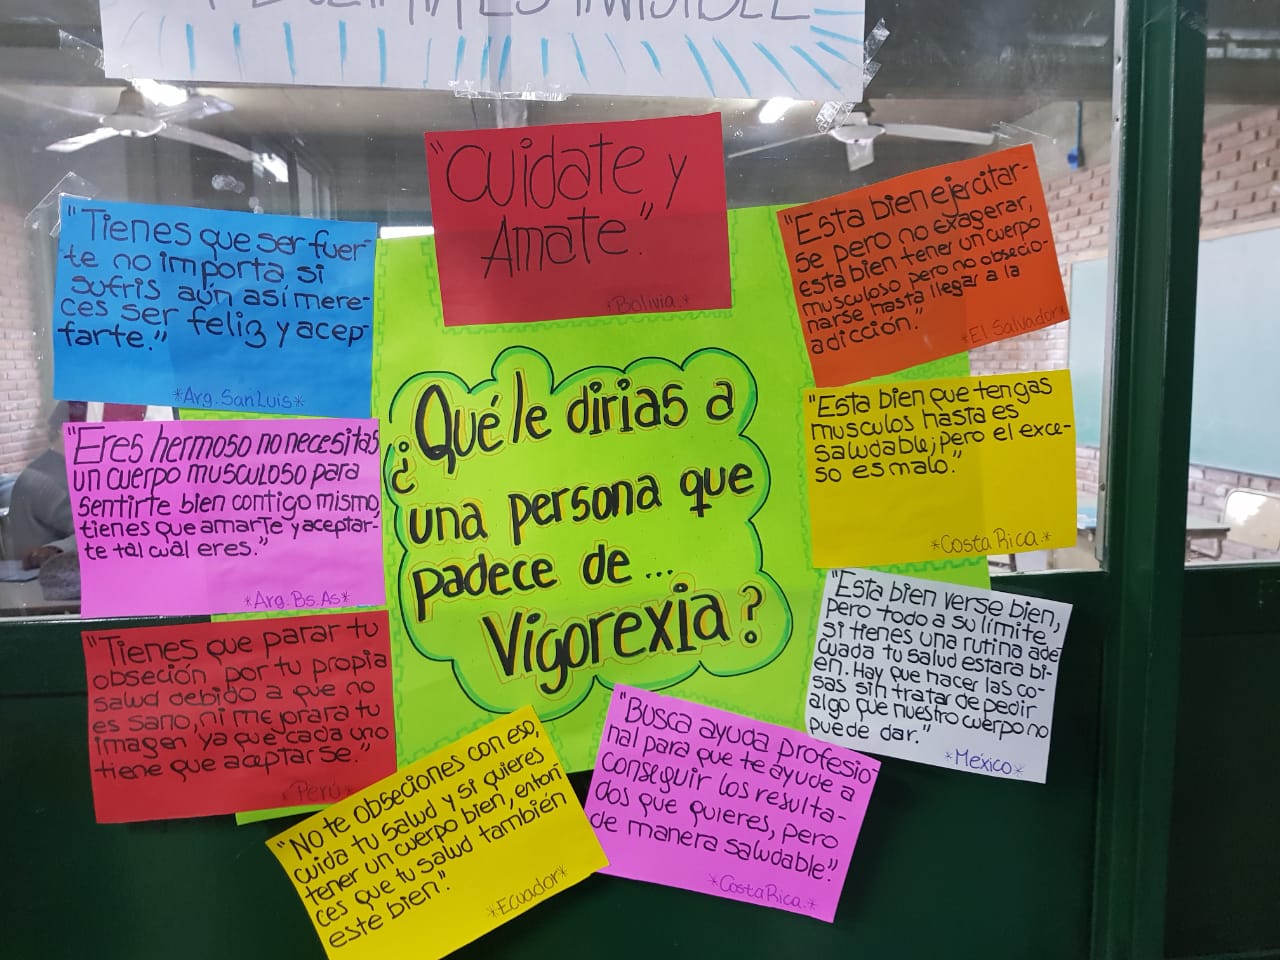 ES INVISIBLE
"Cuidate y
Amate."
*Bolivia.*
"Tienes que ser fuer-
te no importa si
sufris aún así mere-
ces ser feliz y acep-
tarte."
*Arg. San Luis*
"Eres hermoso no necesitas
un cuerpo musculoso para
sentirte bien contigo mismo,
tienes que amarte y aceptar-
te tal cuál eres."
*Arg. Bs. As*
"Tienes que parar tu
obseción por tu propia
salud debido a que no
es sano, ni mejorara tu
imagen ya que cada uno
tiene que aceptarse."
*Perú*
"No te obseciones con eso,
cuida tu salud y si quieres
tener un cuerpo bien, enton-
ces que tu salud también
este bien".
*Ecuador*
¿Qué le dirias a
una persona que
padece de...
Vigorexia?
"Esta bien ejercitar-
se pero no exagerar,
esta bien tener un cuerpo
musculoso pero no obsecio-
narse hasta llegar a la
adicción."
*El Salvador*
"Esta bien que tengas
musculos hasta es
saludable; pero el exce-
so es malo."
*Costa Rica.*
"Esta bien verse bien,
pero todo a su límite
si tienes una rutina ade
cuada tu salud estara bi-
en. Hay que hacer las co-
sas sin tratar de pedir
algo que nuestro cuerpo no
puede dar."
*México*
"Busca ayuda profesio-
nal para que te ayude a
conseguir los resulta-
dos que quieres, pero
de manera saludable."
*Costa Rica.*